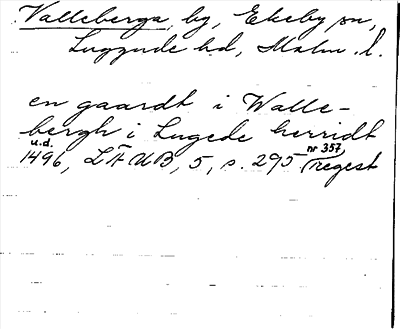 Valleberga by, Ekeby sn,
Luggude hd, Malm. l.
en gaardt i Walle-
bergh i Lugede herridt
u.d. nr 357,
1496, LÄUB, 5, s. 295 regest